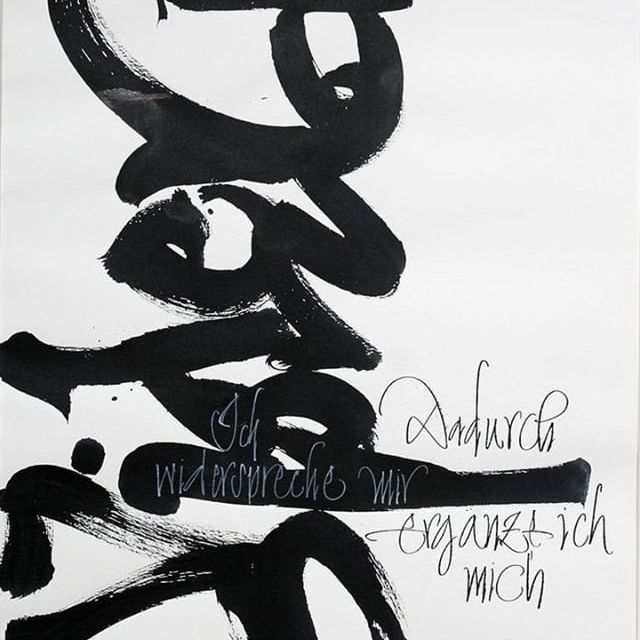 Ich
widerspreche mir
Dadurch
erganze ich
mich